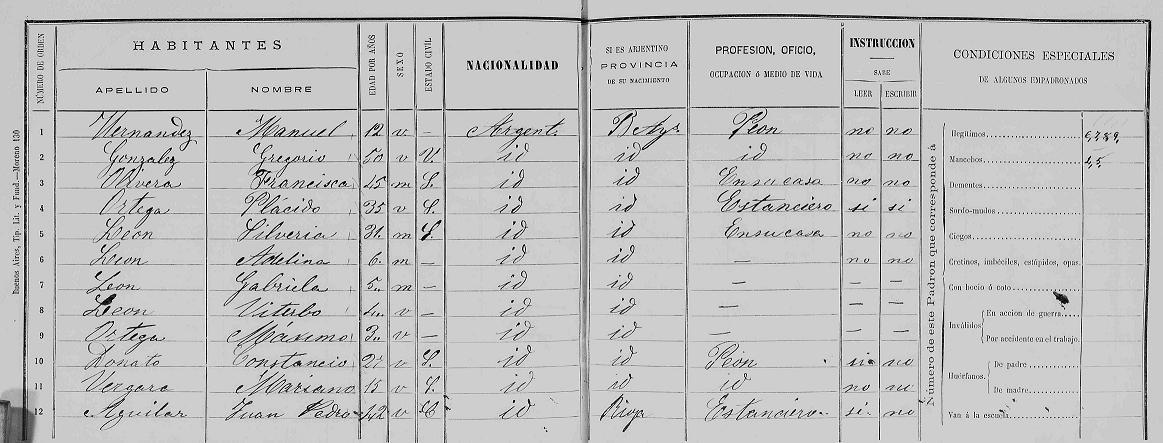 NÚMERO DE ORDEN HABITANTES EDAD POR AÑOS SEXO ESTADO CIVIL NACIONALIDAD SI ES ARJENTINO PROVINCIA DE SU NACIMIENTO PROFESION, OFICIO, OCUPACION ó MEDIO DE VIDA INSTRUCCION SABE CONDICIONES ESPECIALES DE ALGUNOS EMPADRONADOS
APELLIDO NOMBRE LEER ESCRIBIR
1 Hernandez Manuel 12 v — Argent. B Ays Peon no no
2 Gonzalez Gregorio 50 v V. id id id no no
3 Olivera Francisca 45 m S. id id En su casa no no
4 Ortega Plácido 35 v S. id id Estanciero si si
5 Leon Silveria 31 m S. id id En su casa no no
6 Leon Adelina 6 m — id id — no no
7 Leon Gabriela 5 m — id id — — —
8 Leon Viterbo 4 v — id id — — —
9 Ortega Máximo 3 v — id id — — —
10 Donato Constancio v S. id id Peon no
11 Vergara Mariano 15 v S. id id id no no
12 Aguilar Juan Pedro 42 v id Rioja Estanciero si no
Número de este Padron que corresponde á
Ilegítimos 6,7,8,9,
Mancebos 4,5,
Dementes
Sordo-mudos
Ciegos
Cretinos, imbéciles, estúpidos, opas.
Con bocio ó coto
Inválidos
En accion de guerra
Por accidente en el trabajo.
Huérfanos
De padre
De madre
Van á la escuela
Buenos Aires, Tip. Lit. y Fund.—Moreno 130